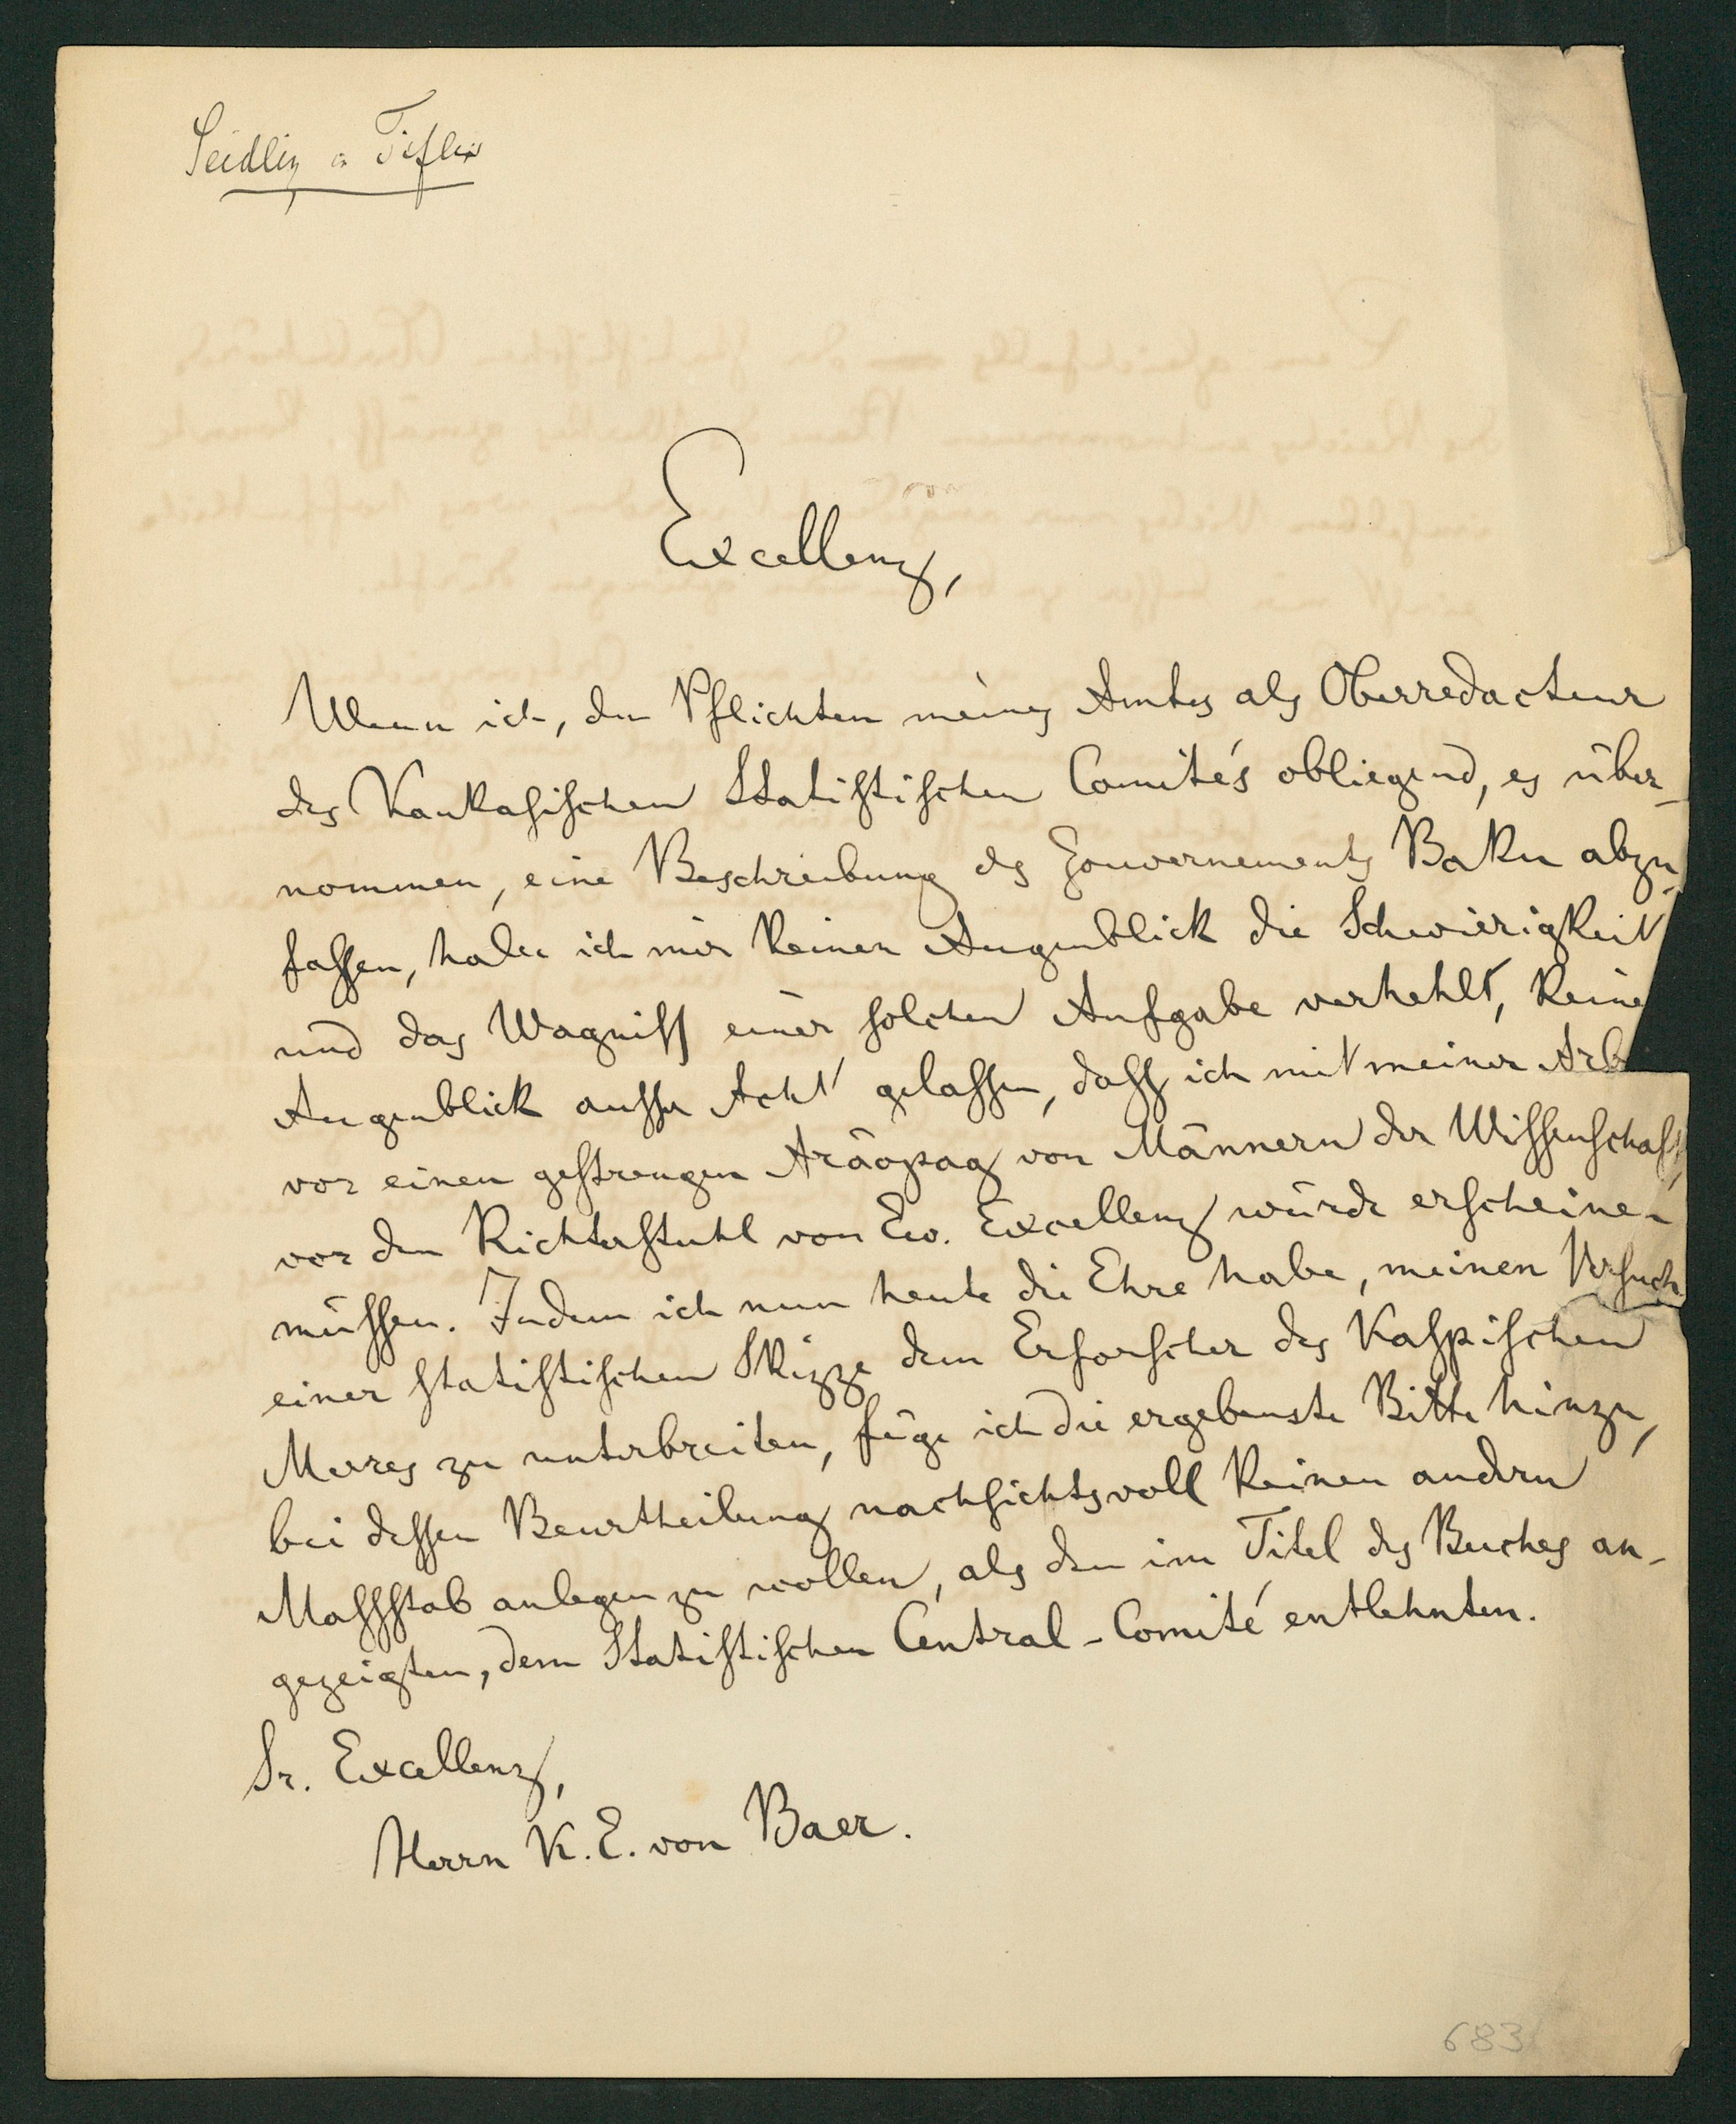 Seidliz in Tiflis
Excellenz,
Wenn ich, den Pflichten meines Amtes als Oberredacteur
des Kaukasischen Statistischen Comité's obliegend, es über-
nommen, eine Beschreibung des Gouvernements Baku abzu-
fassen, habe ich mir keinen Augenblick die Schwierigkeit
und das Wagniss einer solchen Aufgabe verhehlt, keine
Augenblick ausser Acht gelassen, dass ich mit meiner Arb
vor einen gestrengen Aräopag von Männern der Wissenschaft,
vor den Richterstuhl von Ew. Excellenz würde erscheinen
müssen. Indem ich nun heute die Ehre habe, meinen Versuch
einer statistischen Skizze dem Erforscher des Kaspischen
Meeres zu unterbreiten, füge ich die ergebenste Bitte hinzu,
bei dessen Beurtheilung nachsichtsvoll keinen andern
Massstab anlegen zu wollen, als den im Titel des Buches an-
gezeigten, dem Statistischen Central-Comité entlehnten.
Sr. Excellenz,
Herrn K. E. von Baer.
683